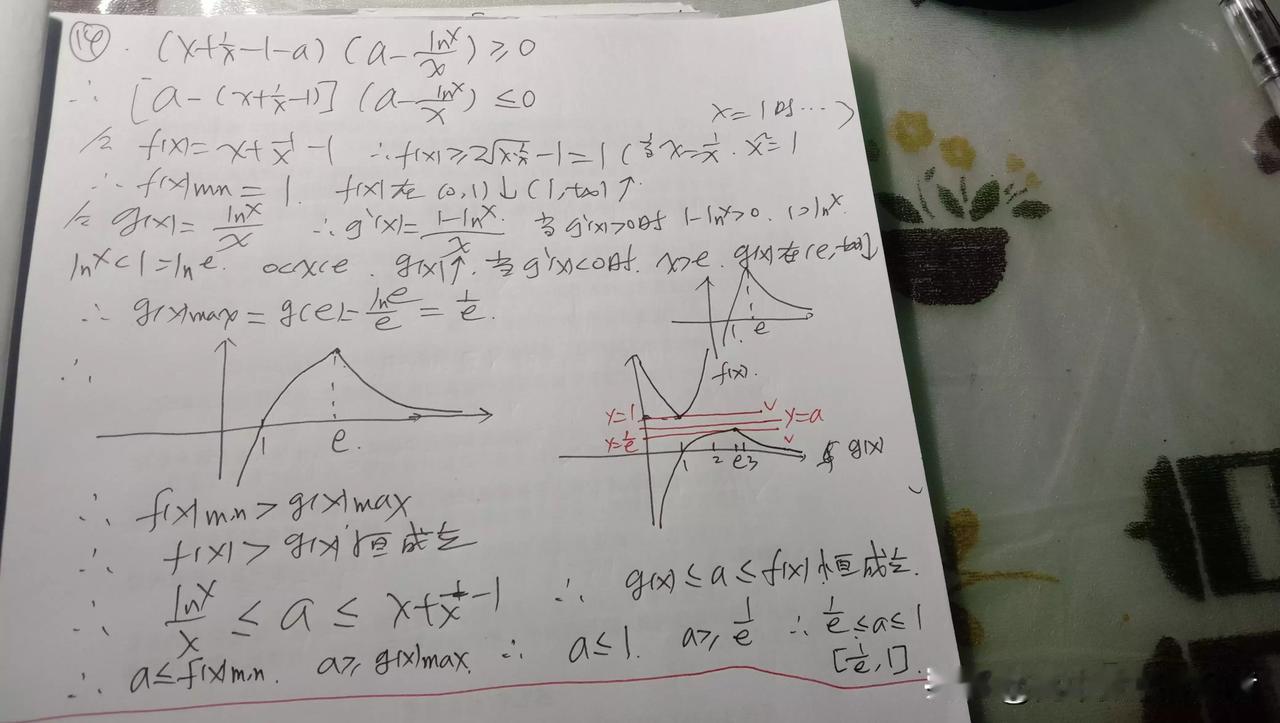 ⑭. (x+1/x-1-a)(a-lnx/x)≥0
∴ [a-(x+1/x-1)](a-lnx/x)≤0
x=1时…)
令 f(x)=x+1/x-1 ∴f(x)≥2√(x·1/x)-1=1 (当x=1/x. x²=1
∴ f(x)min=1 f(x)在(0,1)↓(1,+∞)↑.
令 g(x)=lnx/x ∴g'(x)=(1-lnx)/x 当g'(x)>0时 1-lnx>0. 1>lnx.
lnx<1=lne. 0<x<e. g(x)↑. 当g'(x)<0时. x>e. g(x)在(e,+∞)↓
∴ g(x)max=g(e)=lne/e=1/e.
1 e
∴
1 e.
f(x).
y=1 y=a
y=1/e
1 2 e 3 g(x)
∴ f(x)min>g(x)max
∴ f(x)>g(x)恒成立
∴ lnx/x≤a≤x+1/x-1 ∴ g(x)≤a≤f(x)恒成立.
∴ a≤f(x)min. a≥g(x)max. ∴ a≤1. a≥1/e ∴ 1/e≤a≤1
[1/e,1].